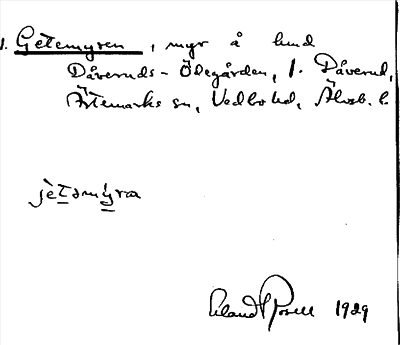 1. Getemyren, myr å hmd
Dåveruds-Ödegården, 1. Dåverud,
Ärtemarks sn, Vedbo hd, Älvsb. l.
jètəmy̱ra
Erland Rosell 1929